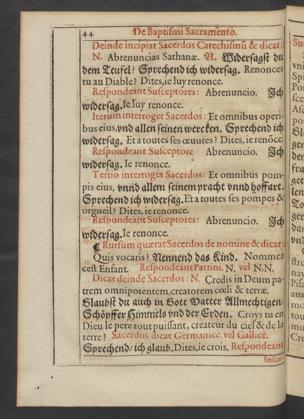 44 De Baptismi Sacramento.
Deinde incipiat Sacerdos Catechismũ & dicat:
N. Abrenuncias Sathanæ. N. Widersagst du
dem Teufel? Sprechend ich widersag. Renonces
tu au Diable? Dites, ie luy renonce.
Respondeant Susceptores: Abrenuncio. Ich
widersag. Ie luy renonce.
Iterum interroget Sacerdos: Et omnibus operi-
bus eius, vnd allen seinen wercken. Sprechend ich
widersag. Et a toutes ses œuures? Dites, ie renõce.
Respondeant Susceptore Abrenuncio. Ich
widersag. Ie renonce.
Tertio interroget Sacerdos: Et omnibus pom-
pis eius, vnnd allem seinem pracht vnnd hoffart.
Sprechend ich widersag. Et a toutes ses pompes &
orgueil? Dites, ie renonce.
Respondeant Susceptores: Abrenuncio. Ich
widersag. Ie renonce.
¶ Rursum quærat Sacerdos de nomine & dicat
Quis vocaris? Nennend das Kind. Nommez
cest Enfant. Respondeant Patrini. N. vel N.N.
Dicat deinde Sacerdos: N. Credis in Deum pa-
trem omnipotentem, creatorem cœli & terræ.
Glaubst du auch in Gott Vatter Allmechtigen
Schöpffer Himmels vnd der Erden. Croys tu en
Dieu le pere tout puissant, createur du ciel & de la
terre? Sacerdos dicat Germanicè vel Gallicè.
Sprechend/ ich glaub. Dites, ie crois. Respondeant
Suscep